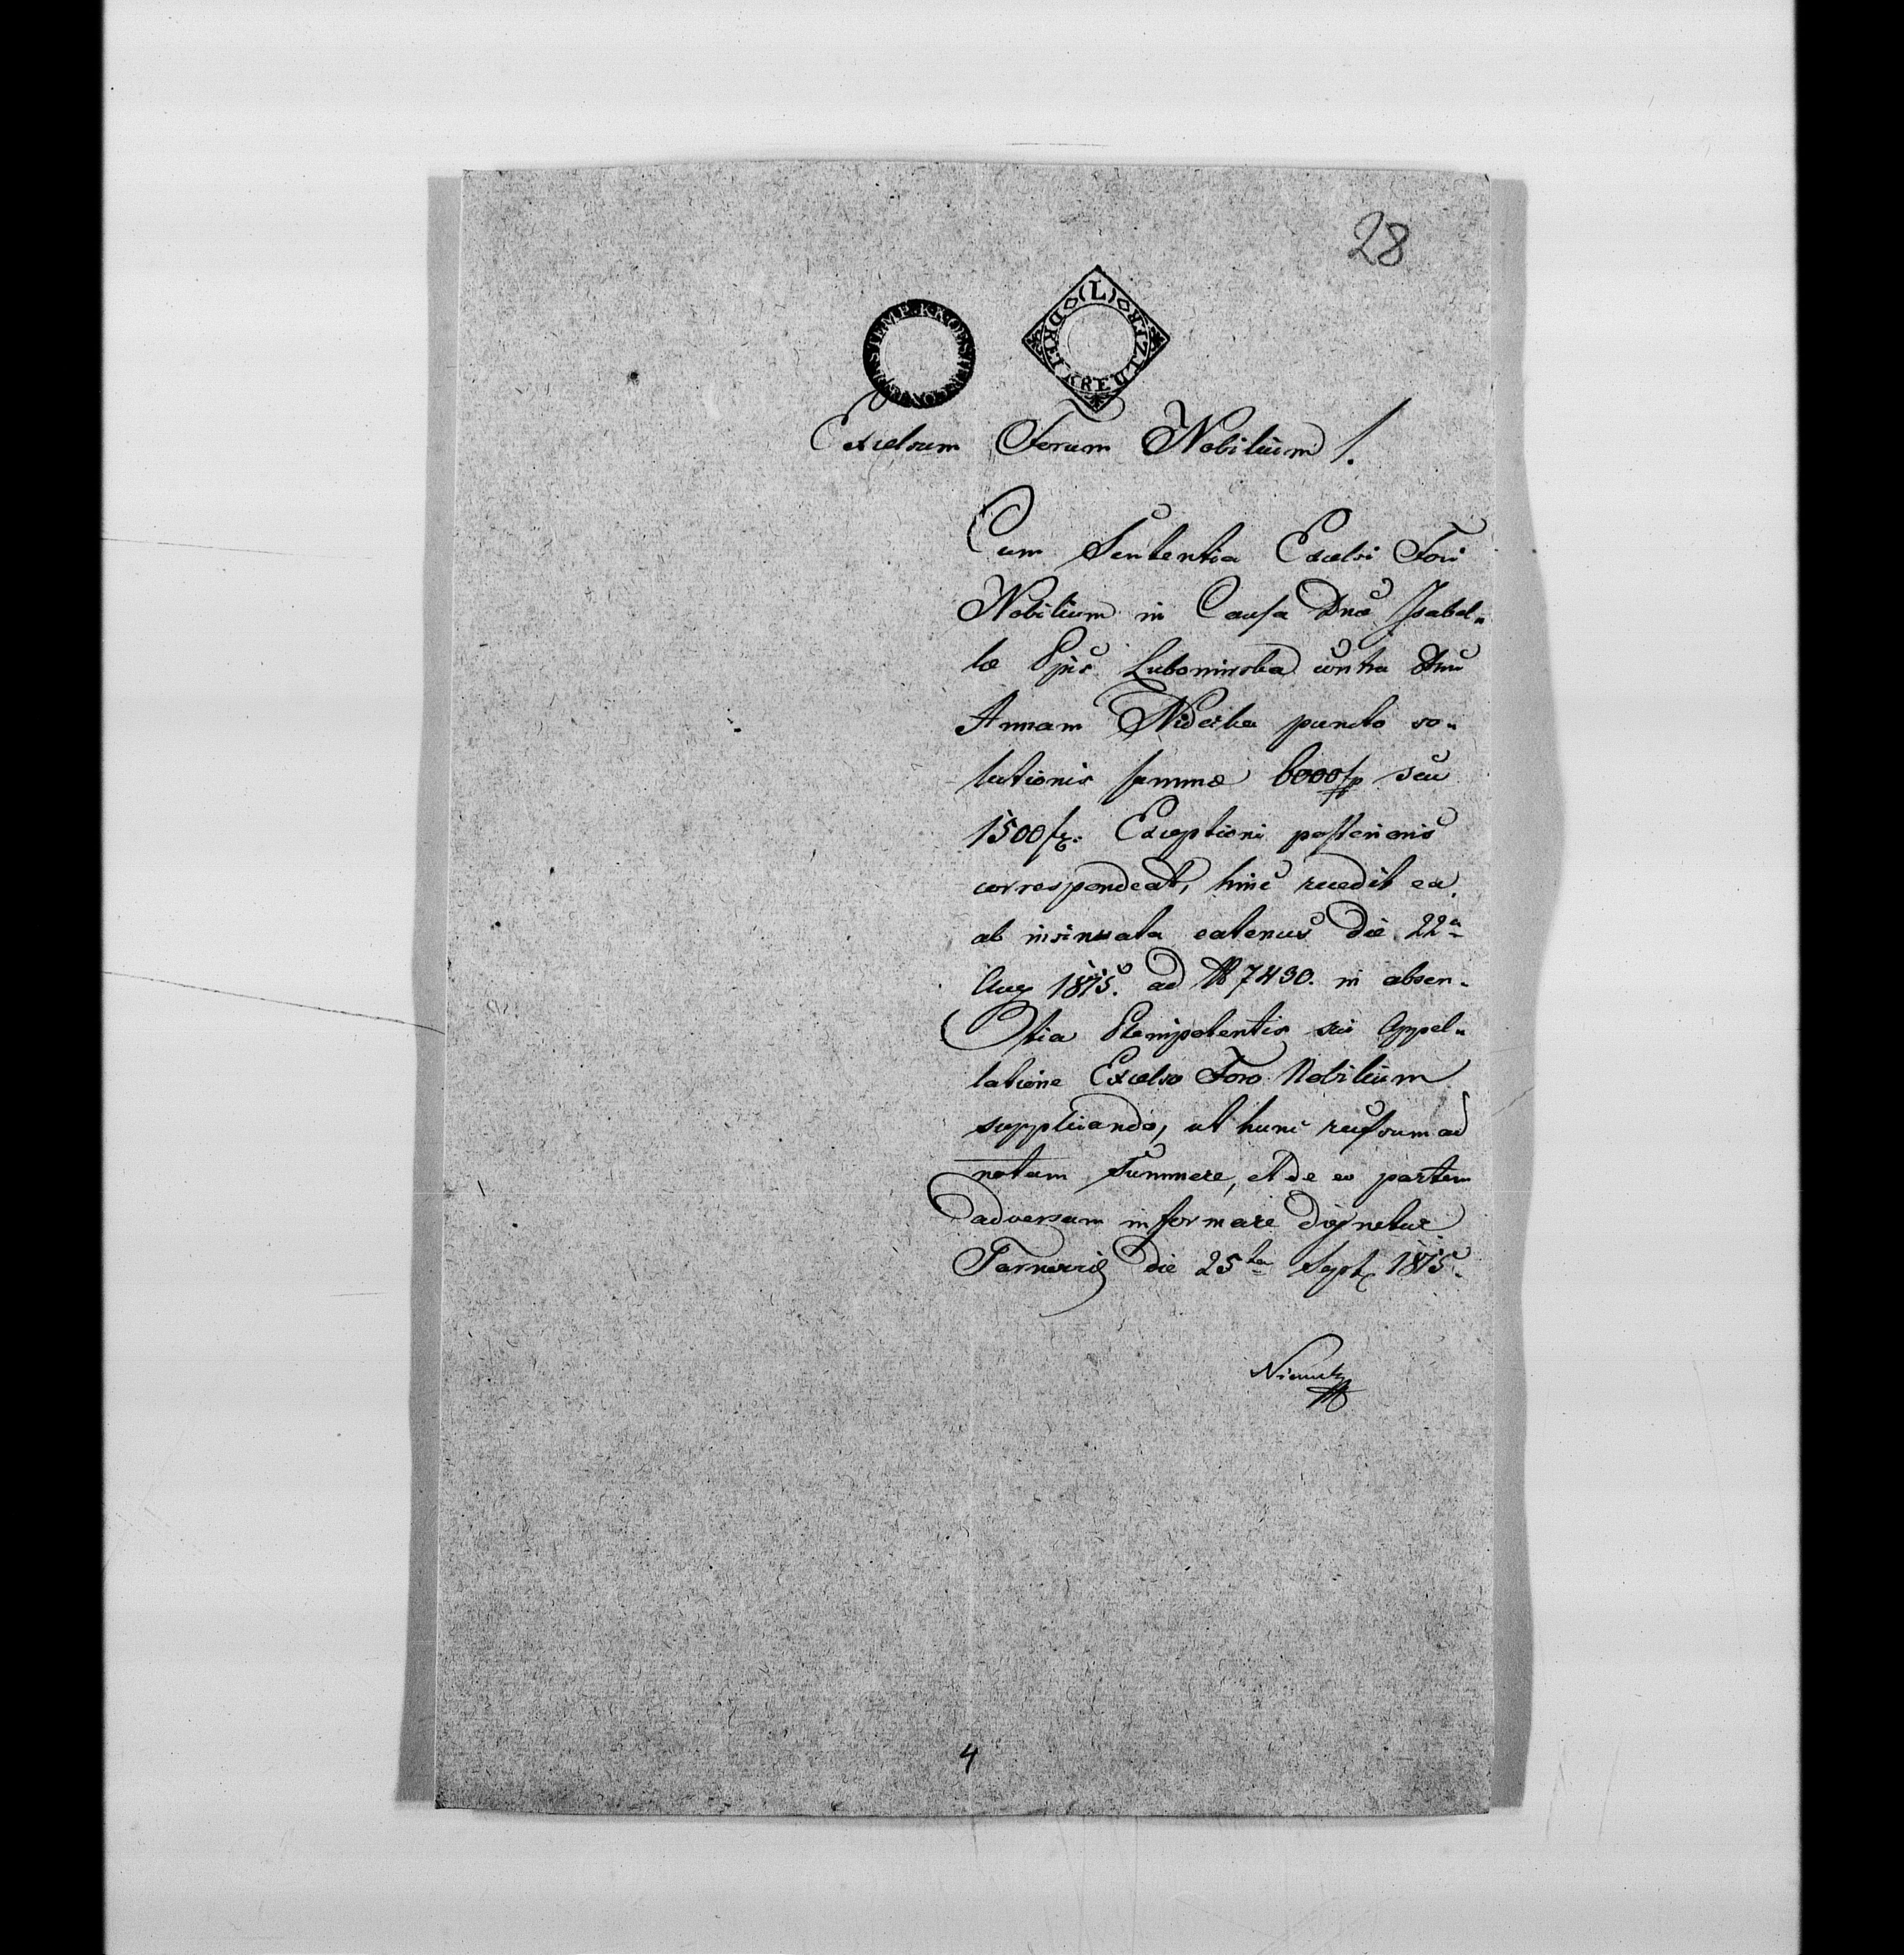 28
(L)
DREI KREUTZER
Excelsum Forum Nobilium!
Cum Sententia Excelsi Fori
Nobilium in Causa Dnæ Isabel-
læ Lubomirska contra
Annam puncto so-
lutionis summæ 6000 seu
1500 Exceptioni posterioris
correspondeat, hinc recedit ea
ab insinuata eatenus die 22a
Aug 1815. ad № 7430. in absen-
tia Plenipotentis sui Appel-
latione Excelso Foro Nobilium
supplicando, ut hunc ad
notam summere, et de eo partem
adversam informare dignetur
die 25ta Sept 1815.
4